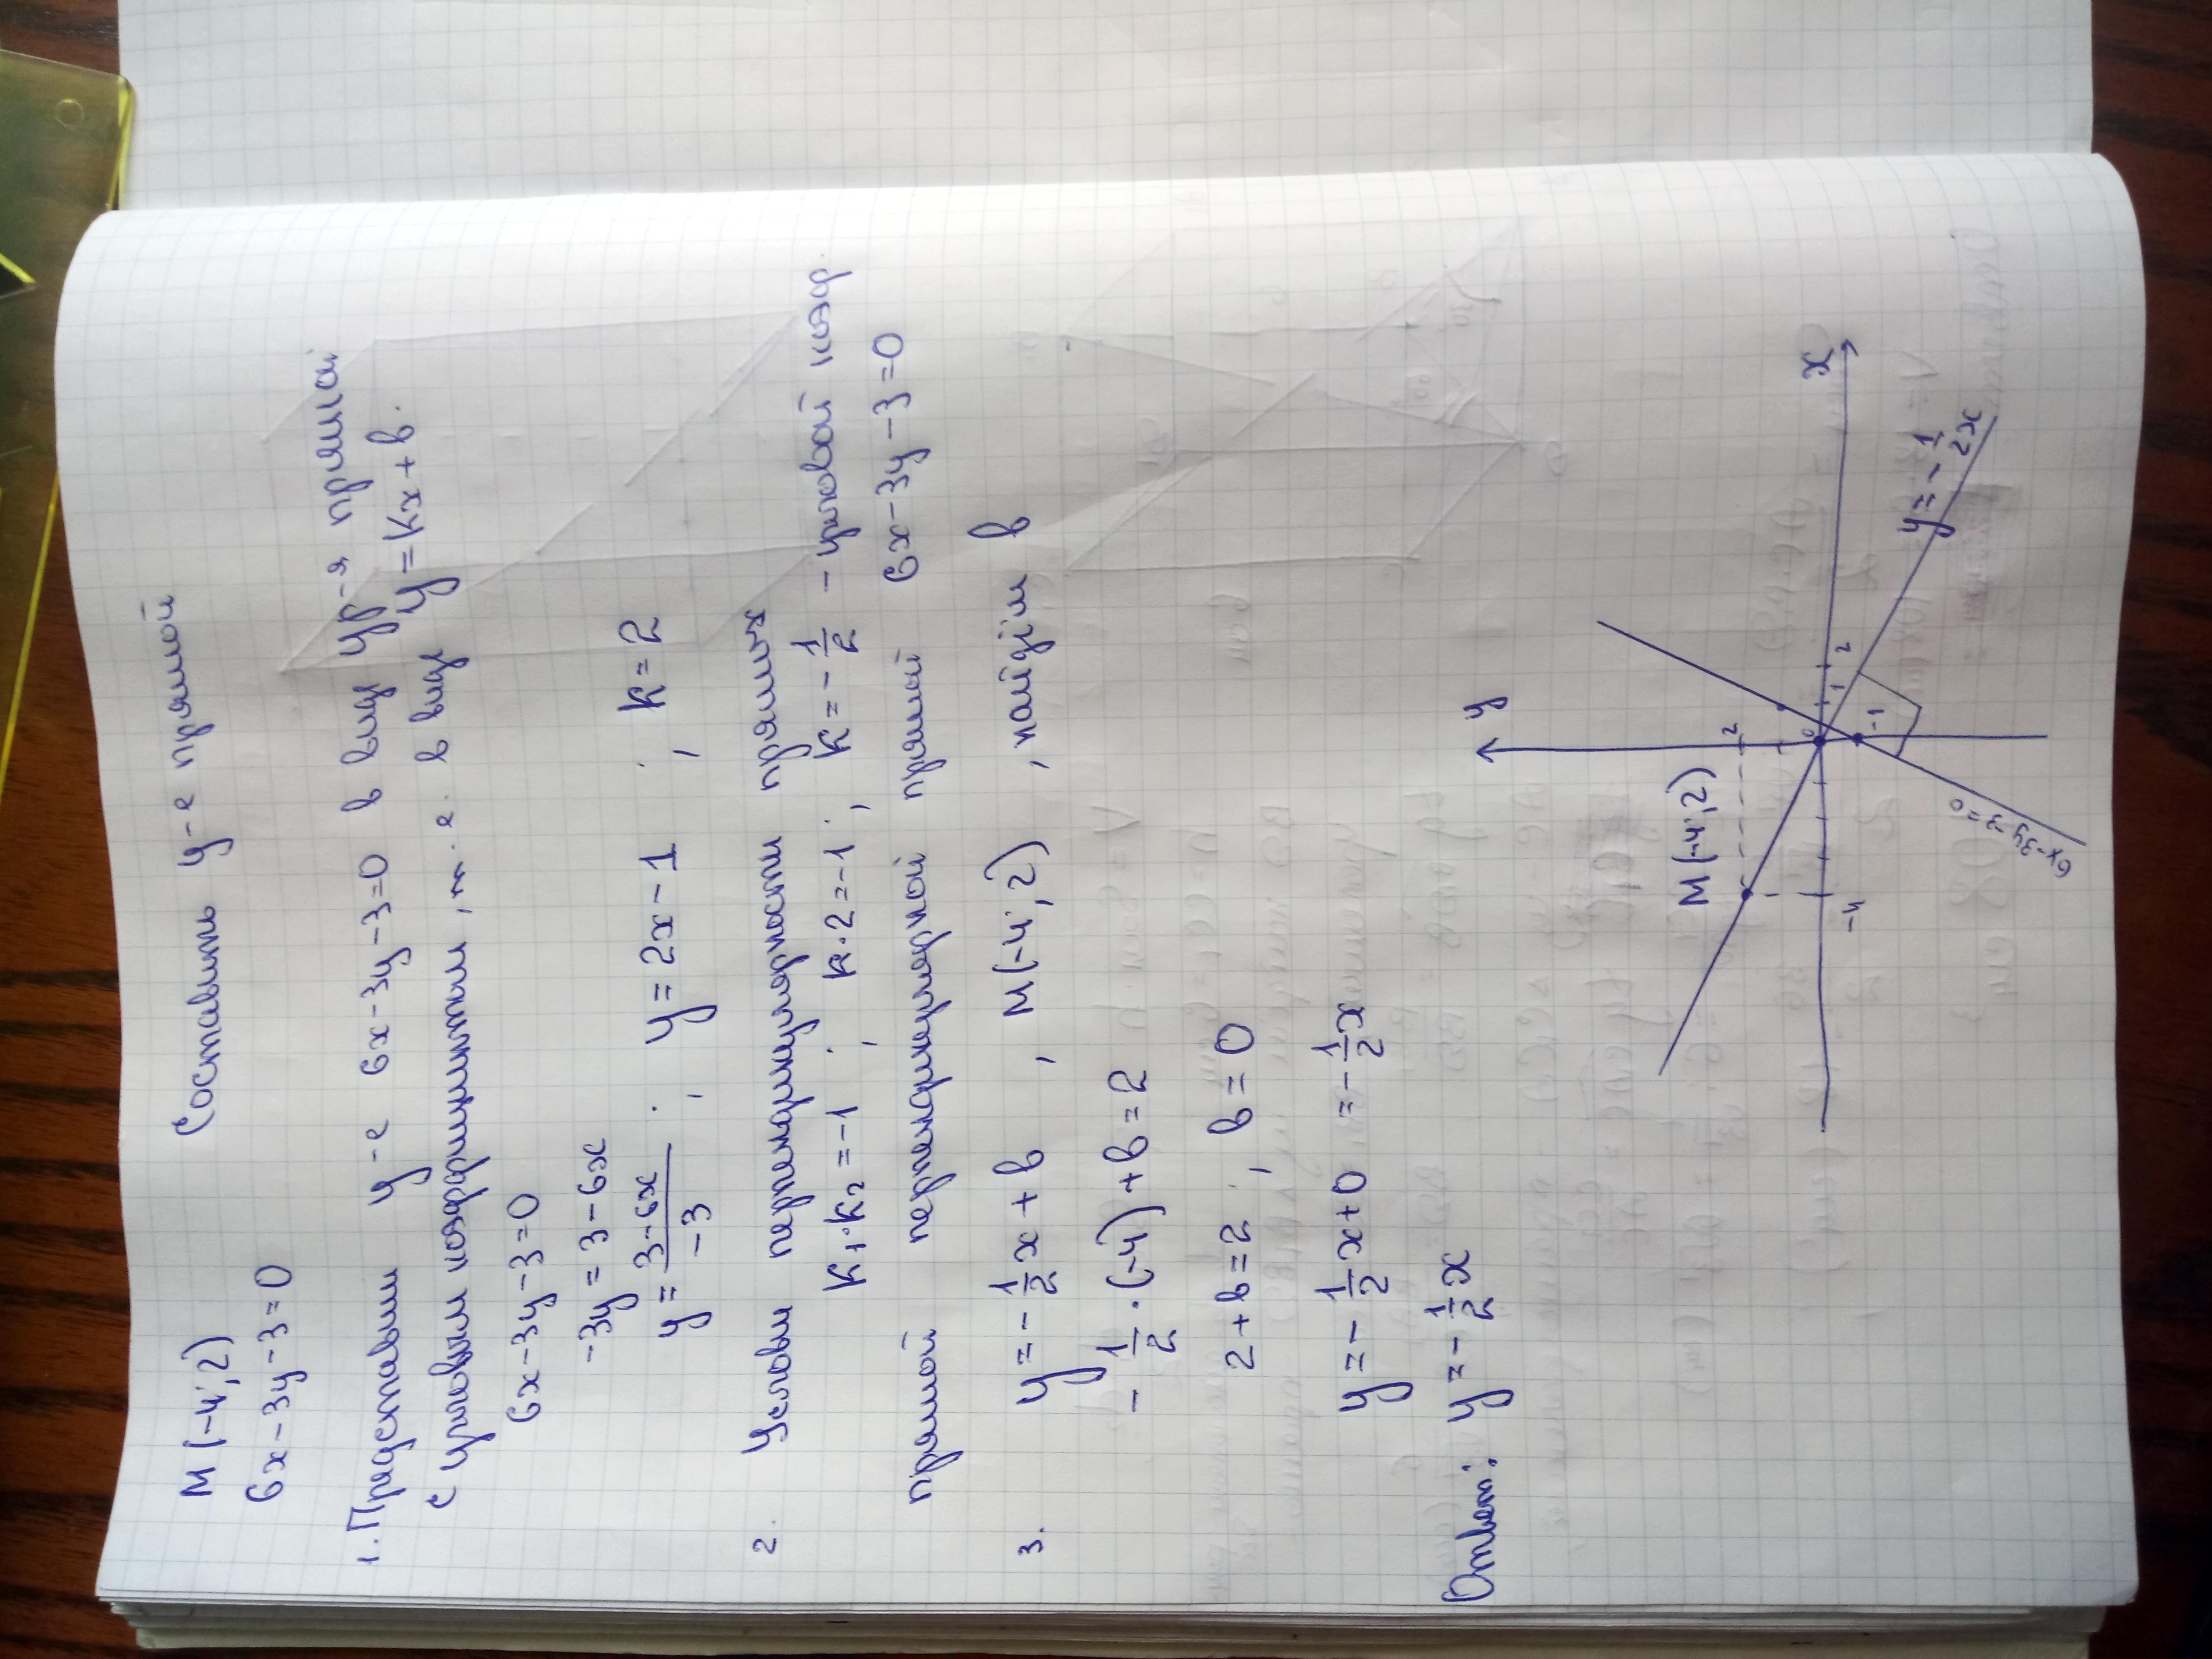 М (-4; 2) Составить у-е прямой
6x - 3y - 3 = 0
1. Представим у-е 6x - 3y - 3 = 0 в виде ур-я прямой
с угловым коэффициентом, т. е. в виде y = kx + b.
6x - 3y - 3 = 0
-3y = 3 - 6x
y = \frac{3 - 6x}{-3} ; y = 2x - 1 ; k = 2
2. Условие перпендикулярности прямых
k₁ · k₂ = -1 ; k · 2 = -1 ; k = -\frac{1}{2} - угловой коэф.
прямой перпендикулярной прямой 6x - 3y - 3 = 0
3. y = -\frac{1}{2}x + b , М (-4; 2) , найдём b
-\frac{1}{2} · (-4) + b = 2
2 + b = 2 ; b = 0
y = -\frac{1}{2}x + 0 = -\frac{1}{2}x
Ответ: y = -\frac{1}{2}x
y
М (-4; 2)
2
0
1
2
x
-4
-1
6x - 3y - 3 = 0
y = -\frac{1}{2x}